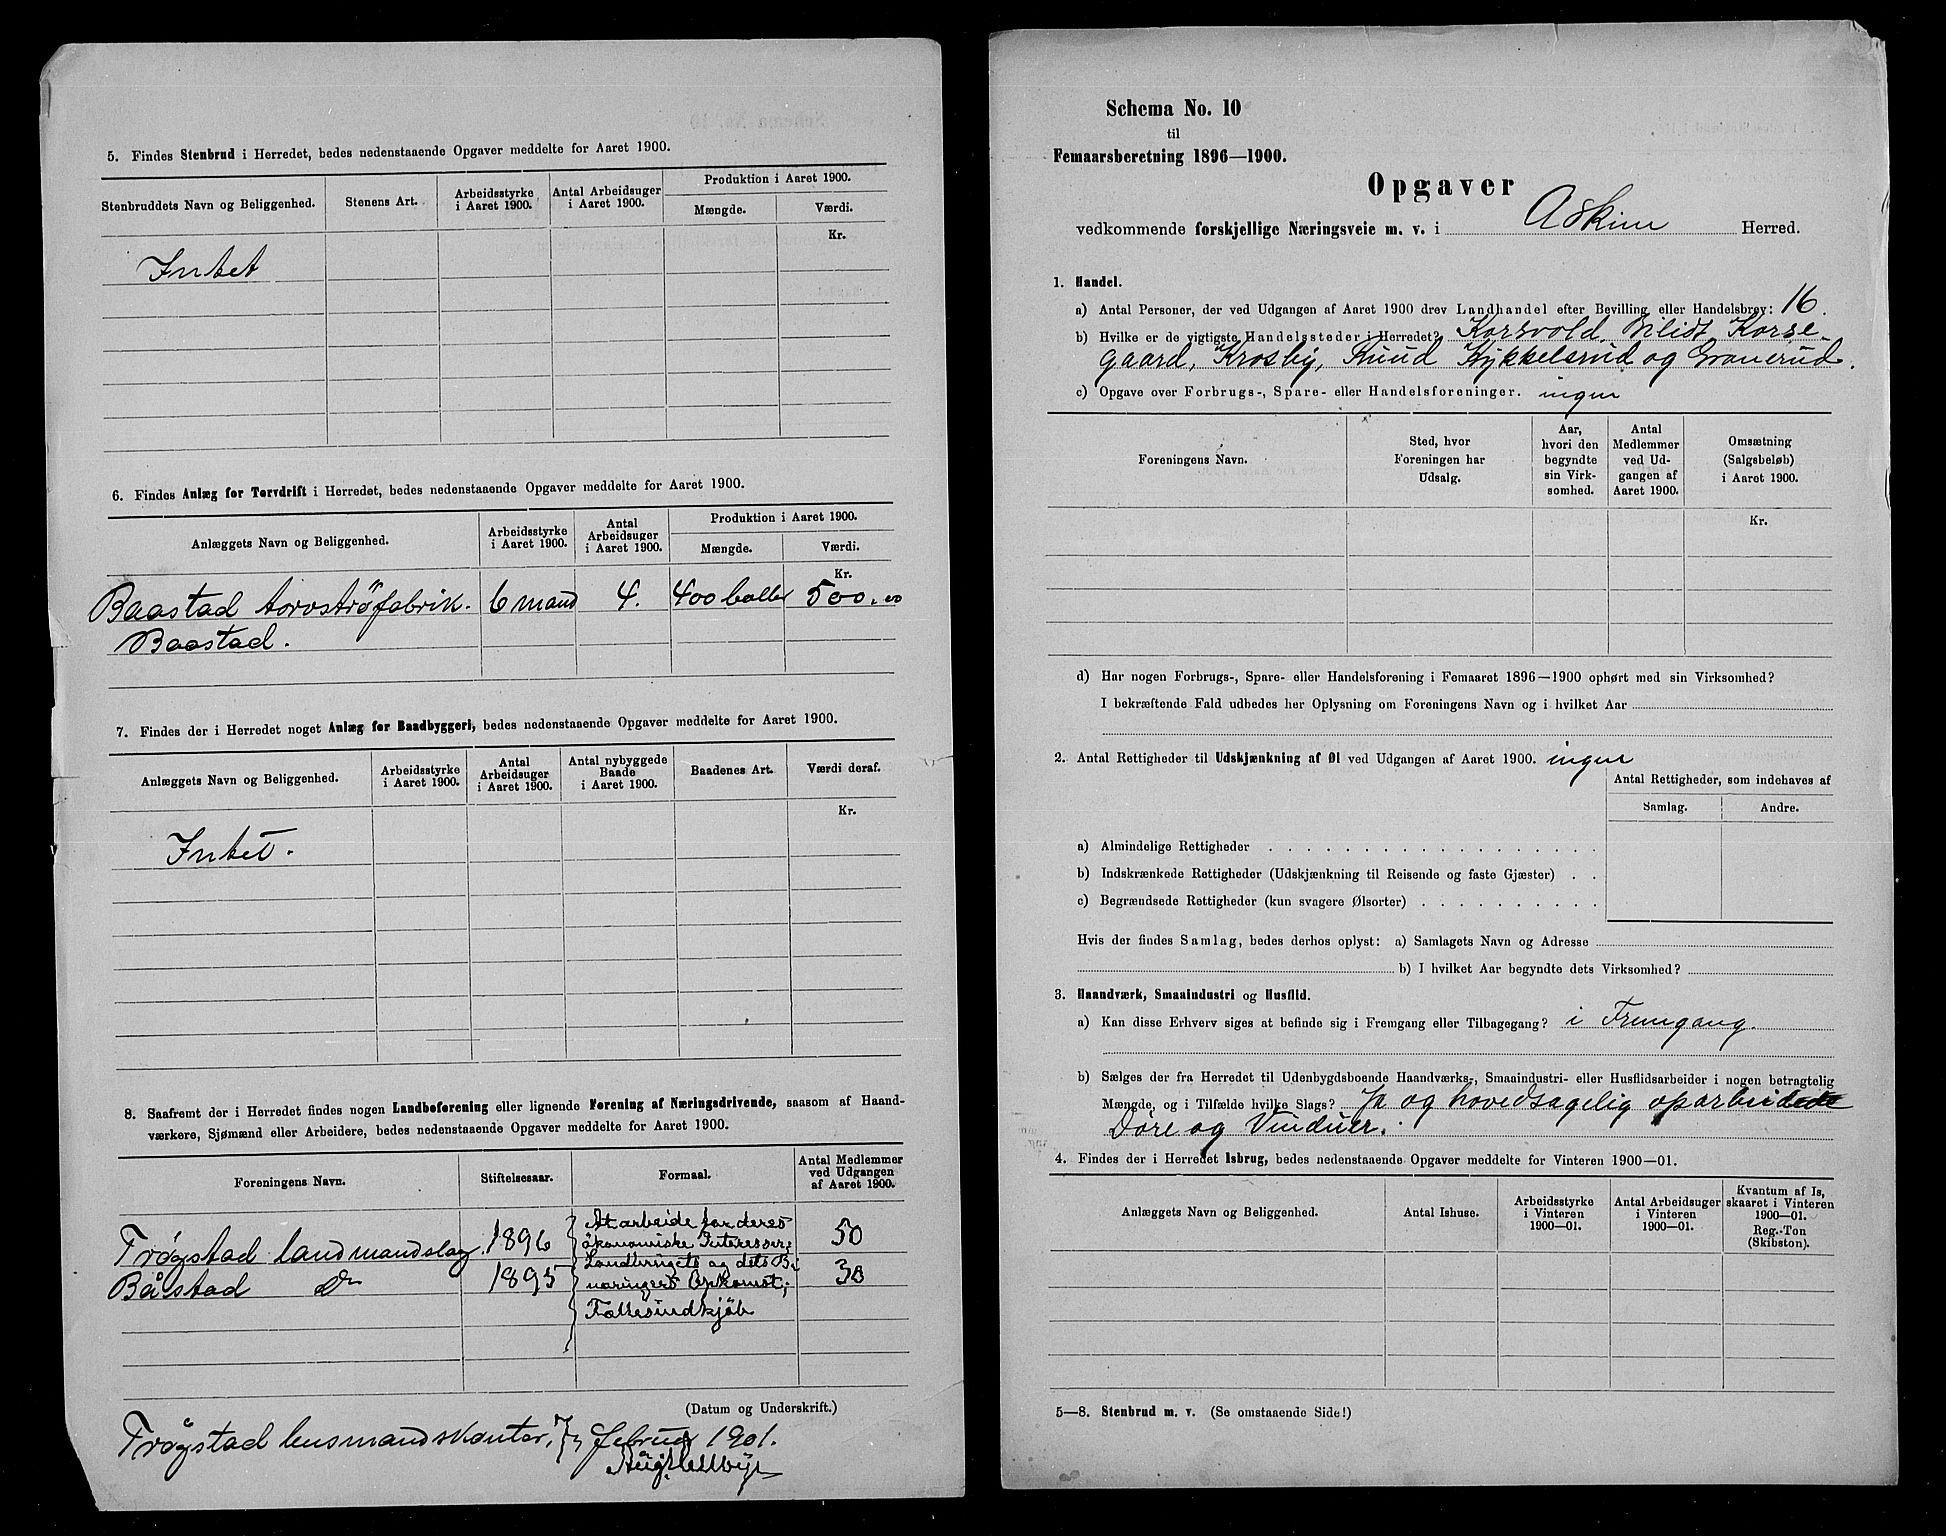 5. Findes Stenbrud i Herredet, bedes nedenstaaende Opgaver meddelte for Aaret 1900.
Stenbruddets Navn og Beliggenhed.
Stenens Art.
Arbeidsstyrke
i Aaret 1900.
Antal Arbeidsuger
i Aaret 1900.
Produktion i Aaret 1900.
Mængde.
Værdi.
Kr.
Intet
6. Findes Anlæg for Torvdrift i Herredet, bedes nedenstaaende Opgaver meddelte for Aaret 1900.
Anlæggets Navn og Beliggenhed.
Arbeidsstyrke
i Aaret 1900.
Antal
Arbeidsuger
i Aaret 1900.
Produktion i Aaret 1900.
Mængde.
Værdi.
Kr.
Baastad torvströfabrik. 6 mand 4. 400 baller 500.00
Baastad.
7. Findes der i Herredet noget Anlæg for Baadbyggeri, bedes nedenstaaende Opgaver meddelte for Aaret 1900.
Anlæggets Navn og Beliggenhed.
Arbeidsstyrke
i Aaret 1900.
Antal
Arbeidsuger
i Aaret 1900.
Antal nybyggede
Baade
i Aaret 1900.
Baadenes Art.
Værdi deraf.
Kr.
Intet.
8. Saafremt der i Herredet findes nogen Landboforening eller lignende Forening af Næringsdrivende, saasom af Haand-
værkere, Sjømænd eller Arbeidere, bedes nedenstaaende Opgaver meddelte for Aaret 1900.
Foreningens Navn.
Stiftelsesaar.
Formaal.
Antal Medlemmer
ved Udgangen
af Aaret 1900.
Trøgstad landmandslag 1896 50
Båstad do 1895 30
At arbeide for deres
ökonomiske Interesser;
Landbrugets og dets Bi
næringers Opkomst;
Fællesindkjöb
(Datum og Underskrift.)
Trøgstad lensmandskontor, 7/2 februar 1901.
5—8. Stenbrud m. v. (Se omstaaende Side!)
Schema No. 10
til
Femaarsberetning 1896—1900.
Opgaver
vedkommende forskjellige Næringsveie m. v. i Askim Herred.
1. Handel.
a) Antal Personer, der ved Udgangen af Aaret 1900 drev Landhandel efter Bevilling eller Handelsbrev: 16.
b) Hvilke er de vigtigste Handelssteder i Herredet? Korsvold, Vilidt Korse-
gaard, Krosby, Skuud Kykkelsrud og Granerud.
c) Opgave over Forbrugs-, Spare- eller Handelsforeninger. ingen
Foreningens Navn.
Sted, hvor
Foreningen har
Udsalg.
Aar,
hvori den
begyndte
sin Virk-
somhed.
Antal
Medlemmer
ved Ud-
gangen af
Aaret 1900.
Omsætning
(Salgsbeløb)
i Aaret 1900.
Kr.
d) Har nogen Forbrugs-, Spare- eller Handelsforening i Femaaret 1896—1900 ophørt med sin Virksomhed?
I bekræftende Fald udbedes her Oplysning om Foreningens Navn og i hvilket Aar
2. Antal Rettigheder til Udskjænkning af Øl ved Udgangen af Aaret 1900. ingen
Antal Rettigheder, som indehaves af
Samlag.
Andre.
a) Almindelige Rettigheder
b) Indskrænkede Rettigheder (Udskjænkning til Reisende og faste Gjæster)
c) Begrændsede Rettigheder (kun svagere Ølsorter)
Hvis der findes Samlag, bedes derhos oplyst: a) Samlagets Navn og Adresse
b) I hvilket Aar begyndte dets Virksomhed?
3. Haandværk, Smaaindustri og Husflid.
a) Kan disse Erhverv siges at befinde sig i Fremgang eller Tilbagegang? i Fremgang.
b) Sælges der fra Herredet til Udenbygdsboende Haandværks-, Smaaindustri- eller Husflidsarbeider i nogen betragtelig
Mængde, og i Tilfælde hvilke Slags? Ja og hovedsagelig oparbeidede
Döre og Vinduer.
4. Findes der i Herredet Isbrug, bedes nedenstaaende Opgaver meddelte for Vinteren 1900—01.
Anlæggets Navn og Beliggenhed.
Antal Ishuse.
Arbeidsstyrke
i Vinteren
1900—01.
Antal Arbeidsuger
i Vinteren
1900—01.
Kvantum af Is,
skaaret i Vinteren
1900—01.
Reg.-Ton
(Skibston).